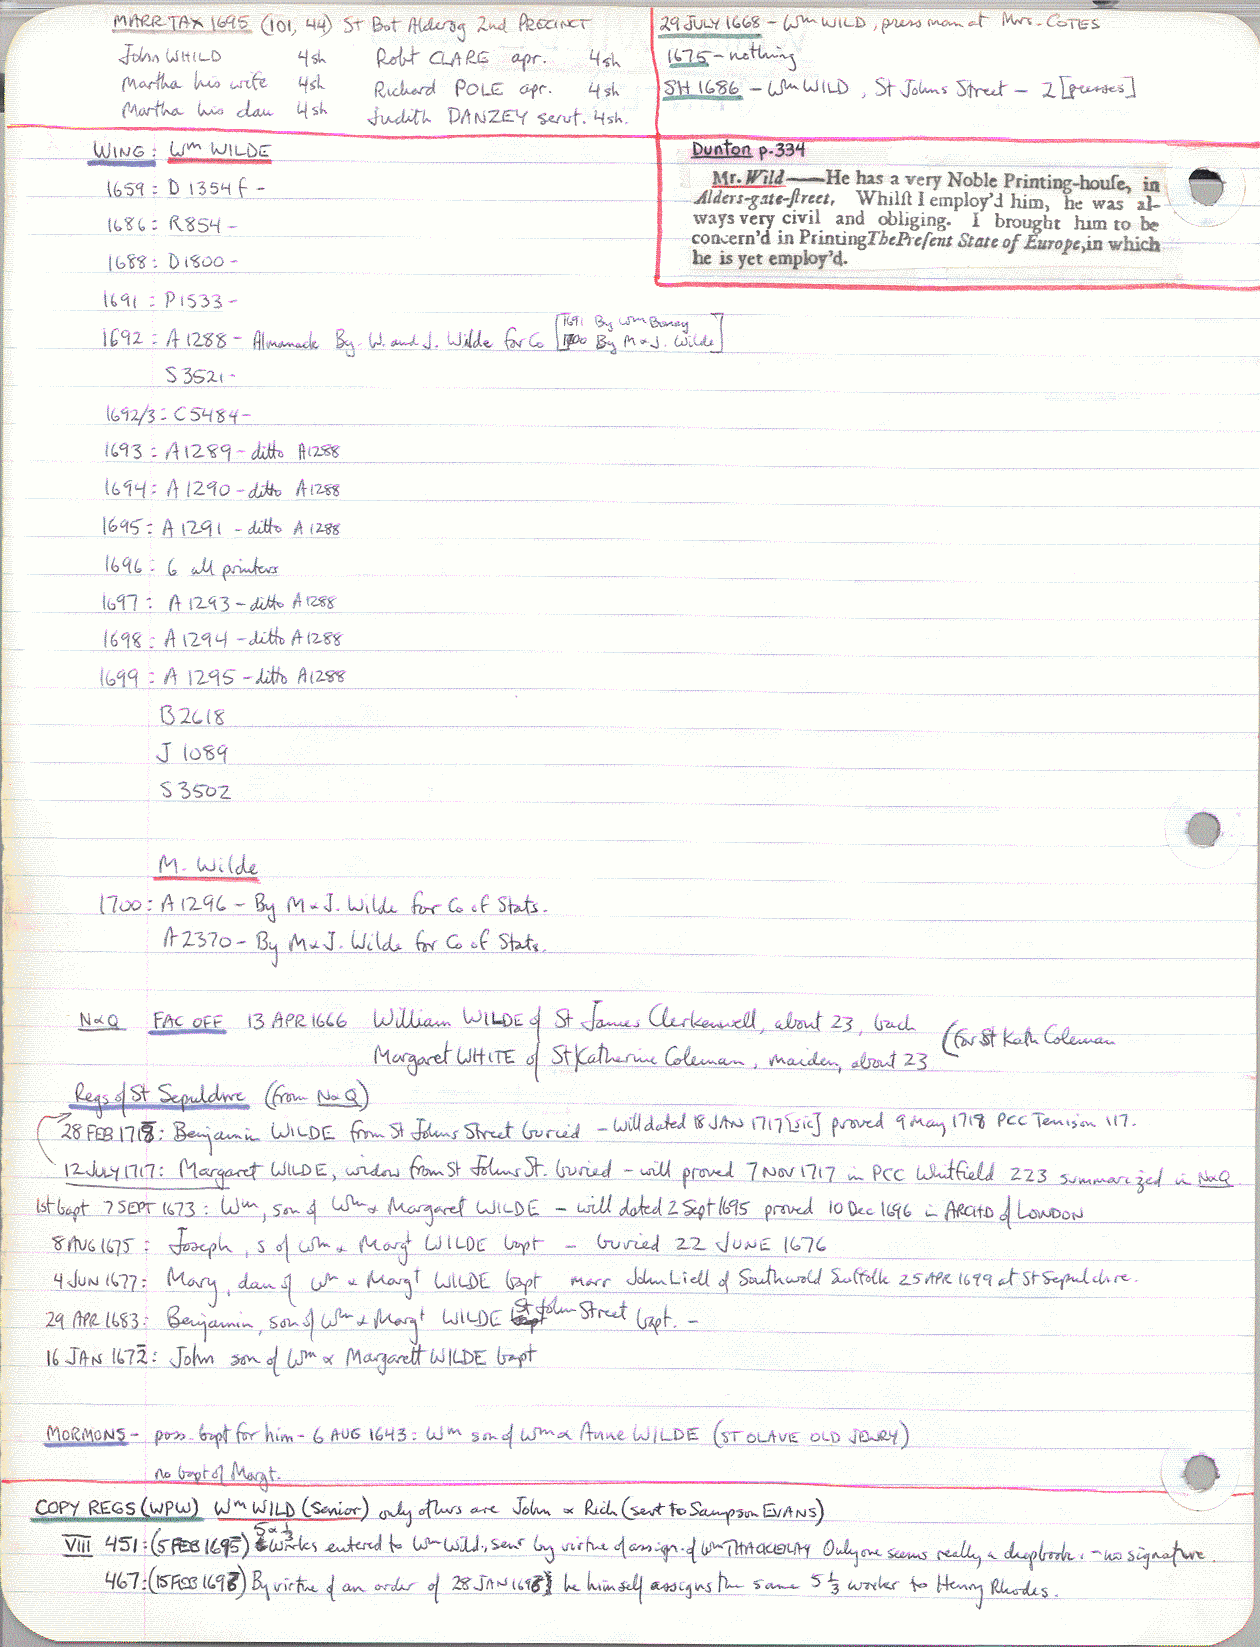 MARR TAX 1695 (101, 44) St Bot Aldersg 2nd PRECINCT
John WHILD 4sh Robt CLARE apr. 4sh
Martha his wife 4sh Richard POLE apr. 4sh
Martha his dau 4sh Judith DANZEY servt. 4sh.
29 JULY 1668 - Wm WILD, pressman at Mrs. COTES
1675 - nothing
SH 1686 - Wm WILD, St Johns Street - 2 [presses]
Dunton p.334
Mr. Wild——He has a very Noble Printing-houſe, in
Alders-gate-ſtreet, Whilſt I employ'd him, he was al-
ways very civil and obliging. I brought him to be
concern'd in Printing The Preſent State of Europe, in which
he is yet employ'd.
WING: Wm WILDE
1659: D 1354 f -
1686: R854 -
1688: D1800 -
1691: P1533 -
1692: A 1288 - Almanack By W. and J. Wilde for Co [1691 By Wm Bonny
1700 By M & J. Wilde]
S 3521 -
1692/3: C5484 -
1693: A 1289 - ditto A1288
1694: A 1290 - ditto A 1288
1695: A 1291 - ditto A 1288
1696: 6 all printers
1697: A 1293 - ditto A 1288
1698: A 1294 - ditto A 1288
1699: A 1295 - ditto A 1288
B2618
J 1089
S 3502
M. Wilde
1700: A 1296 - By M & J. Wilde for Co of Stats.
A2370 - By M & J. Wilde for Co of Stats.
N&Q FAC OFF 13 APR 1666 William WILDE of St James Clerkenwell, about 23, bach
Margaret WHITE of St Katherine Coleman, maiden, about 23 (for St Kath Coleman
Regs of St Sepulchre (from N&Q)
28 FEB 1718: Benjamin WILDE from St Johns Street buried - will dated 18 JAN 1717 [sic] proved 9 May 1718 PCC Tenison 117.
12 JULY 1717: Margaret WILDE, widow from St Johns St. buried - will proved 7 NOV 1717 in PCC Whitfield 223 summarized in N&Q
1st bapt 7 SEPT 1673: Wm, son of Wm & Margaret WILDE - will dated 2 Sept 1695 proved 10 Dec 1696 in ARCHD of LONDON
8 AUG 1675: Joseph, s of Wm & Margt WILDE bapt - buried 22 JUNE 1676
4 JUN 1677: Mary, dau of Wm & Margt WILDE bapt marr John Liell of Southwold Suffolk 25 APR 1699 at St Sepulchre.
29 APR 1683: Benjamin, son of Wm & Margt WILDE St John Street bapt. -
16 JAN 1672: John son of Wm & Margarett WILDE bapt
MORMONS - poss. bapt for him - 6 AUG 1643: Wm son of Wm & Anne WILDE (ST OLAVE OLD JEWRY)
no bapt of Margt.
COPY REGS (WPW) Wm WILD (Senior) only others are John & Rich (sent to Sampson EVANS)
VIII 451: (5 FEB 1695) 5 & 1/3 works entered to Wm Wild, senr by virtue of assign. of Wm THACKERAY Only one seems really a chapbook. - no signature.
467: (15 FEB 1698) By virtue of an order of 28 JAN 1698 he himself assigns the same 5 1/3 works to Henry Rhodes.